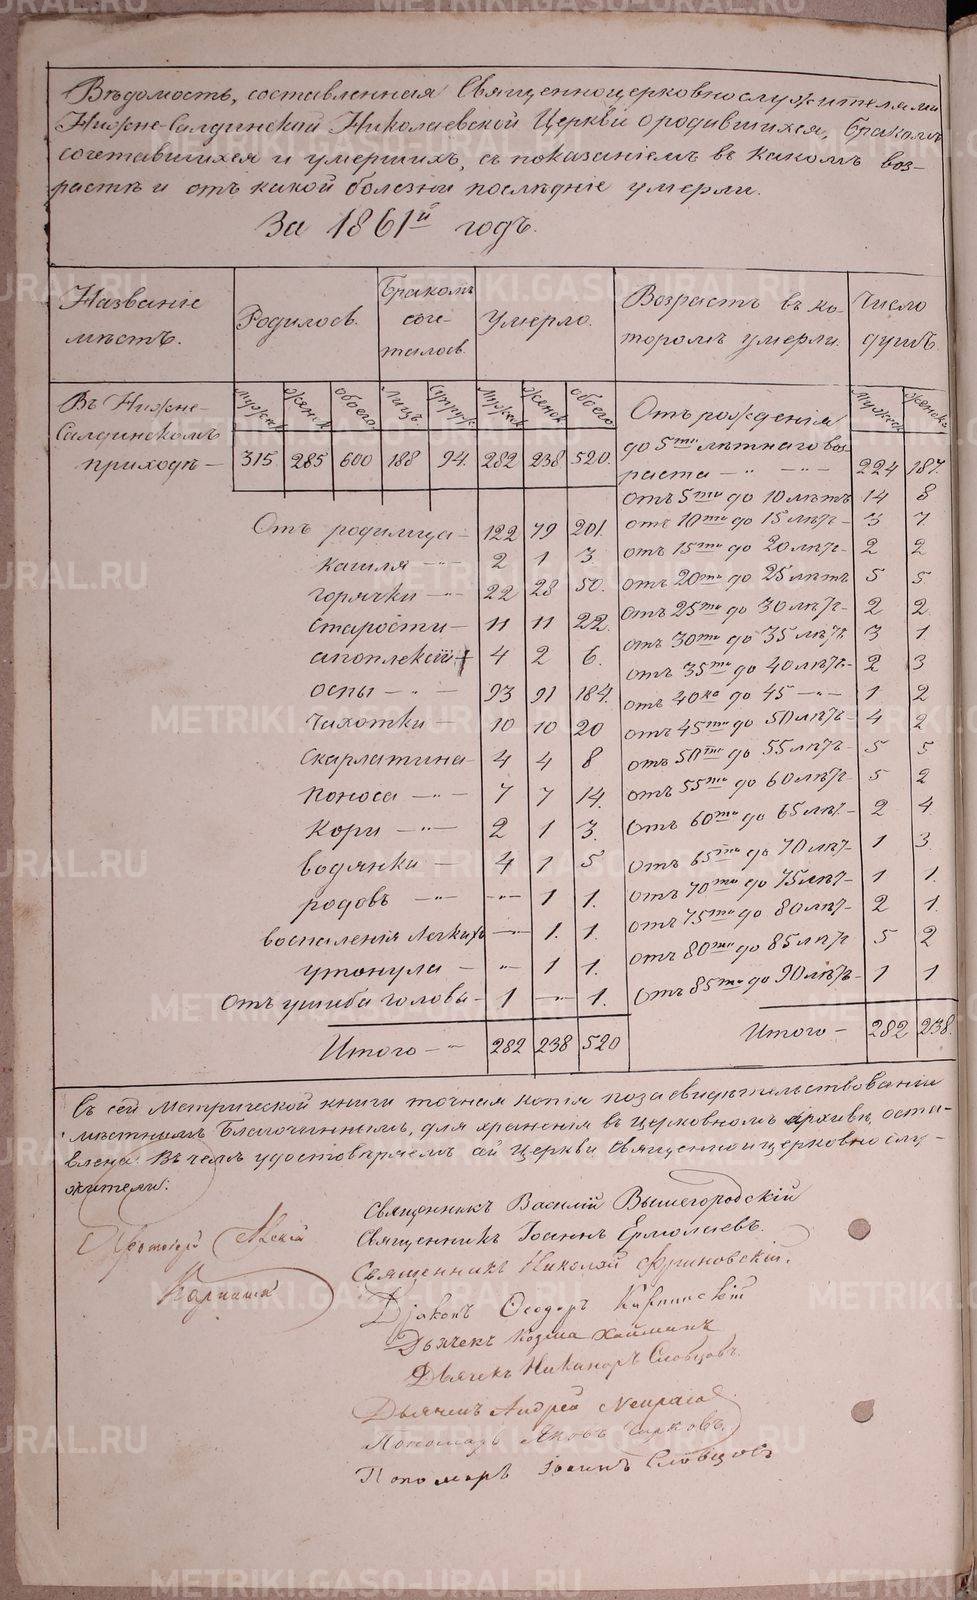 Вѣдомость, составленная Священноцерковнослужителями
Нижне-Салдинской Николаевской Церкви о родившихся, бракомъ
сочетавшихся и умершихъ, съ показаніемъ въ какомъ воз-
растѣ и отъ какой болезни послѣдніе умерли.
За 1861й годъ.
Названіе мѣстъ. Родилось. Бракомъ соче-талось. Умерло. Возрастъ въ ко-торомъ умерли. Число душъ.
мужск женск обоего лицъ супруж мужск женск обоего мужск женск
Въ Нижне-Салдинскомъ приходѣ — 315 285 600 188 94. 282 238 520.
Отъ родимца — 122 79 201.
Кашля — 2 1 3.
горячки — 22 28 50.
старости — 11 11 22.
апоплексіи + 4 2 6.
оспы — 93 91 184.
Чахотки — 10 10 20
Скарлатина — 4 4 8
Поноса — 7 7 14.
Кори — 2 1 3.
водянки — 4 1 5
родовъ — „ 1 1.
воспаленія легкихъ — 1. 1.
утонула — „ 1 1.
Отъ ушиба головы — 1 — 1.
Итого — 282 238 520
Отъ рожденія
до 5ти лѣтнаго воз-
раста — 224 187.
отъ 5ти до 10 лѣтъ 14 8
отъ 10ти до 15 лѣтъ — 3 7
отъ 15ти до 20 лѣтъ — 2 2
отъ 20ти до 25 лѣтъ 5 5
отъ 25ти до 30 лѣтъ — 2 2.
отъ 30ти до 35 лѣтъ 3 1.
отъ 35ти до 40 лѣтъ — 2 3
отъ 40ка до 45 — 1 2
отъ 45ти до 50 лѣтъ — 4 2
отъ 50ти до 55 лѣтъ — 5 5
отъ 55ти до 60 лѣтъ 5 2
Отъ 60ти до 65 лѣтъ — 2 4
отъ 65ти до 70 лѣтъ 1 3
отъ 70ти до 75 лѣтъ — 1 1.
отъ 75ти до 80 лѣтъ — 2 1.
отъ 80ти до 85 лѣтъ 5 2
Отъ 85ти до 90 лѣтъ — 1 1
Итого — 282 238.
Съ сей Метрической книги точная копія по засвидѣтельствованіи
мѣстнымъ Благочиннымъ, для храненія въ Церковномъ Архивѣ, оста-
влена. Въ чемъ удостовѣряемъ сей Церкви Священноицерковнослу-
жители:
Священникъ Василій Вышегородскій
Священникъ Іоаннъ Ермолаевъ.
Священникъ Николай
Діаконъ Ѳеодоръ Карпинскій
Дьячекъ Козма
Дьячекъ Никаноръ Словцовъ.
Дьячекъ Андрей
Пономарь Яковъ
Пономарь Іоаннъ Словцовъ
METRIKI.GASO-URAL.RU